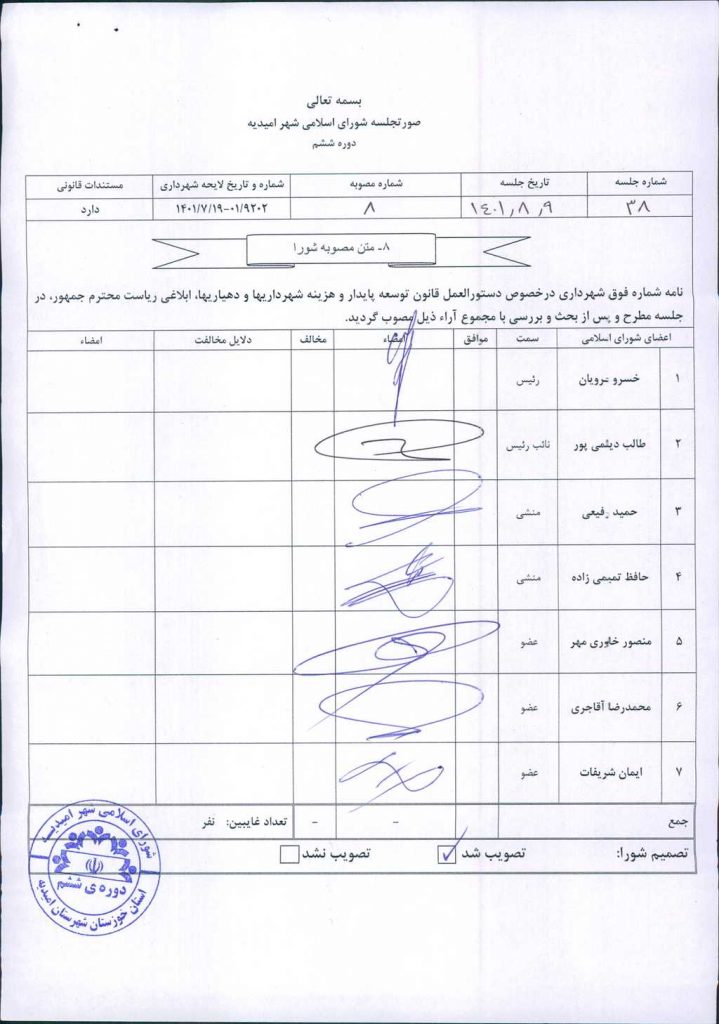 بسمه تعالی
صورتجلسه شورای اسلامی شهر امیدیه
دوره ششم
شماره جلسه تاریخ جلسه شماره مصوبه شماره و تاریخ لایحه شهرداری مستندات قانونی
۳۸ ۱۴۰۱٫۸٫۹ ۸ ۱۴۰۱/۷/۱۹-۰۱/۹۲۰۲ دارد
۸- متن مصوبه شورا
نامه شماره فوق شهرداری درخصوص دستورالعمل قانون توسعه پایدار و هزینه شهرداریها و دهیاریها، ابلاغی ریاست محترم جمهور، در
جلسه مطرح و پس از بحث و بررسی با مجموع آراء ذیل مصوب گردید.
اعضای شورای اسلامی سمت موافق امضاء مخالف دلایل مخالفت امضاء
۱ خسرو رئیس
۲ طالب دیلمی پور نائب رئیس
۳ حمید رفیعی منشی
۴ حافظ تمیمی زاده منشی
۵ منصور خاوری مهر عضو
۶ محمدرضا آقاجری عضو
۷ ایمان شریفات عضو
جمع - - تعداد غایبین: نفر
تصمیم شورا: تصویب شد تصویب نشد
شورای اسلامی شهر امیدیه
دوره ی ششم
استان خوزستان شهرستان امیدیه